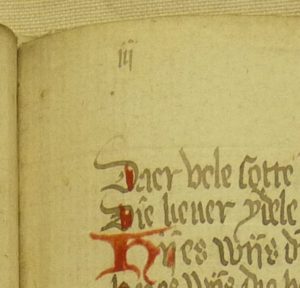 iij
Daer vele sotte
Die liever ydele
Hij es wijs di